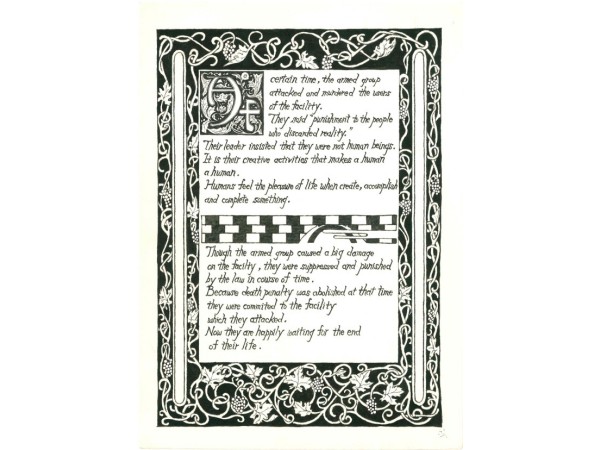 A certain time, the armed group
attacked and murdered the users
of the facility.
They said "punishment to the people
who discarded reality."
Their leader insisted that they were not human beings.
It is their creative activities that makes a human
a human.
Humans feel the pleasure of life when create, accomplish
and complete something.
Though the armed group caused a big damage
on the facility, they were suppressed and punished
by the law in course of time.
Because death penalty was abolished at that time
they were commited to the facility
which they attacked.
Now they are happily waiting for the end
of their life.